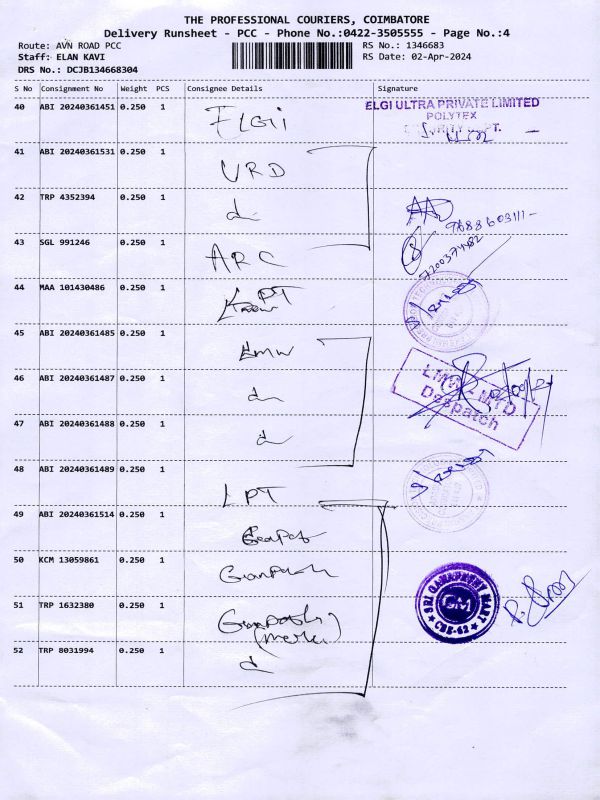 THE PROFESSIONAL COURIERS, COIMBATORE
Delivery Runsheet - PCC - Phone No.:0422-3505555 - Page No.:4
Route: AVN ROAD PCC
RS No.: 1346683
Staff: ELAN KAVI
RS Date: 02-Apr-2024
DRS No.: DCJB134668304
S No Consignment No Weight PCS Consignee Details Signature
40 ABI 20240361451 0.250 1 ELGii ELGI ULTRA PRIVATE LIMITED
POLYTEX
SECURITY DEPT.
41 ABI 20240361531 0.250 1 URD
42 TRP 4352394 0.250 1 d
9688603111-
43 SGL 991246 0.250 1 ARC
7200374482
44 MAA 101430486 0.250 1 LPT
45 ABI 20240361485 0.250 1 LMW
46 ABI 20240361487 0.250 1 d
LMW - MTD
Despatch
47 ABI 20240361488 0.250 1 d
48 ABI 20240361489 0.250 1 LPT
49 ABI 20240361514 0.250 1
50 KCM 13059861 0.250 1
51 TRP 1632380 0.250 1
SRI GANAPATHY MART
GM
CBE-62
52 TRP 8031994 0.250 1 d